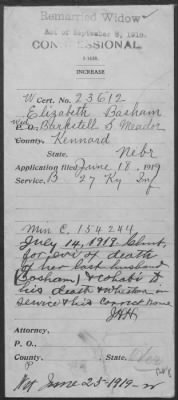 Remarried Widow
Act of September 8, 1916.
CONGRESSIONAL
3-1638.
INCREASE
W Cert. No. 23612
Elizabeth Basham
Wid Barketell S Meador
P. O.,
County, Kennard
State, Nebr
Application filed June 18, 1919
Service, B 27 Ky Inf
Min C. 154244
July 14, 1919 Clmt.
for evi of death
of her last husband
(Basham) & cohabt to
his death & whether in
service & his correct name
Attorney,
P. O.,
County,
State,
June 25-1919